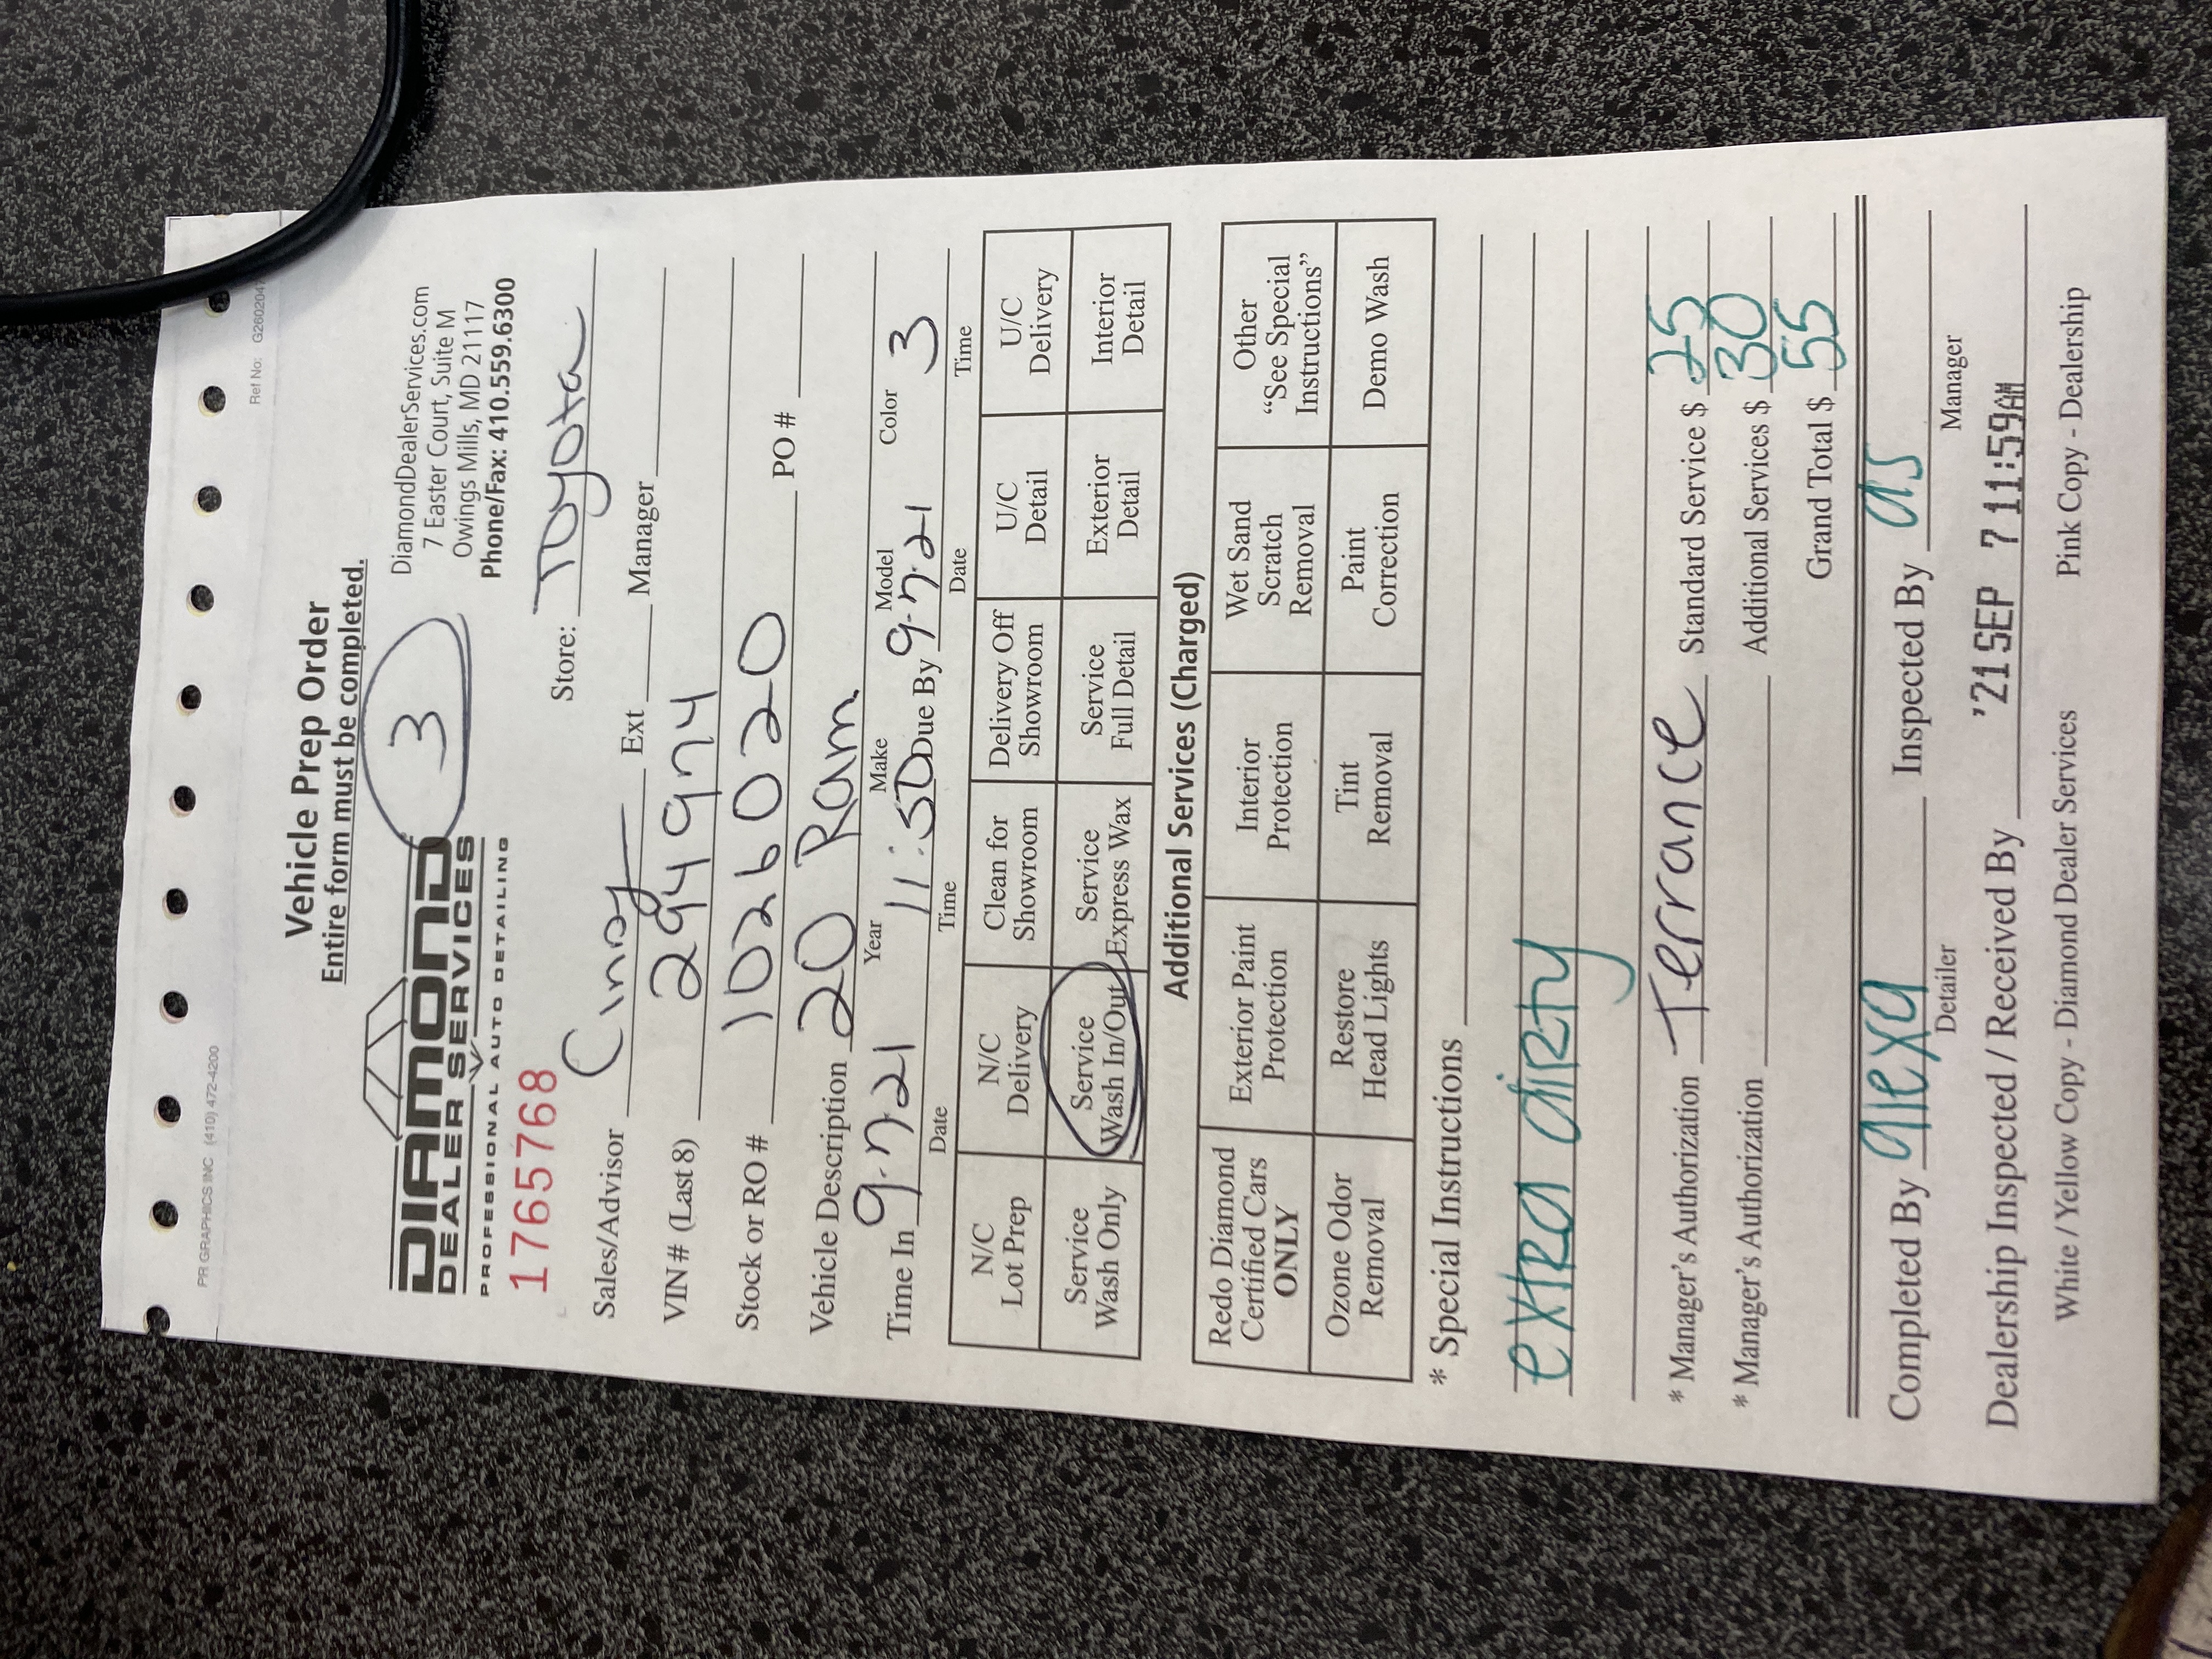 PR GRAPHICS INC (410) 472-4200 Ref No: G2602047
Vehicle Prep Order
Entire form must be completed.
3
DIAMOND
DEALER SERVICES
PROFESSIONAL AUTO DETAILING
DiamondDealerServices.com
7 Easter Court, Suite M
Owings Mills, MD 21117
Phone/Fax: 410.559.6300
1765768
Store: Toyota
Sales/Advisor Cindy Ext Manager
VIN # (Last 8) 294974
Stock or RO # 1026020 PO #
Vehicle Description 20 Ram
Year Make Model Color
Time In 9-7-21 11:50 Due By 9-7-21 3
Date Time Date Time
N/C Lot Prep N/C Delivery Clean for Showroom Delivery Off Showroom U/C Detail U/C Delivery
Service Wash Only Service Wash In/Out Service Express Wax Service Full Detail Exterior Detail Interior Detail
Additional Services (Charged)
Redo Diamond Certified Cars ONLY Exterior Paint Protection Interior Protection Wet Sand Scratch Removal Other "See Special Instructions"
Ozone Odor Removal Restore Head Lights Tint Removal Paint Correction Demo Wash
* Special Instructions
extra dirty
* Manager's Authorization Terrance Standard Service $ 25
* Manager's Authorization Additional Services $ 30
Grand Total $ 55
Completed By alexa Inspected By as
Detailer Manager
Dealership Inspected / Received By '21SEP 7 11:59AM
White / Yellow Copy - Diamond Dealer Services Pink Copy - Dealership